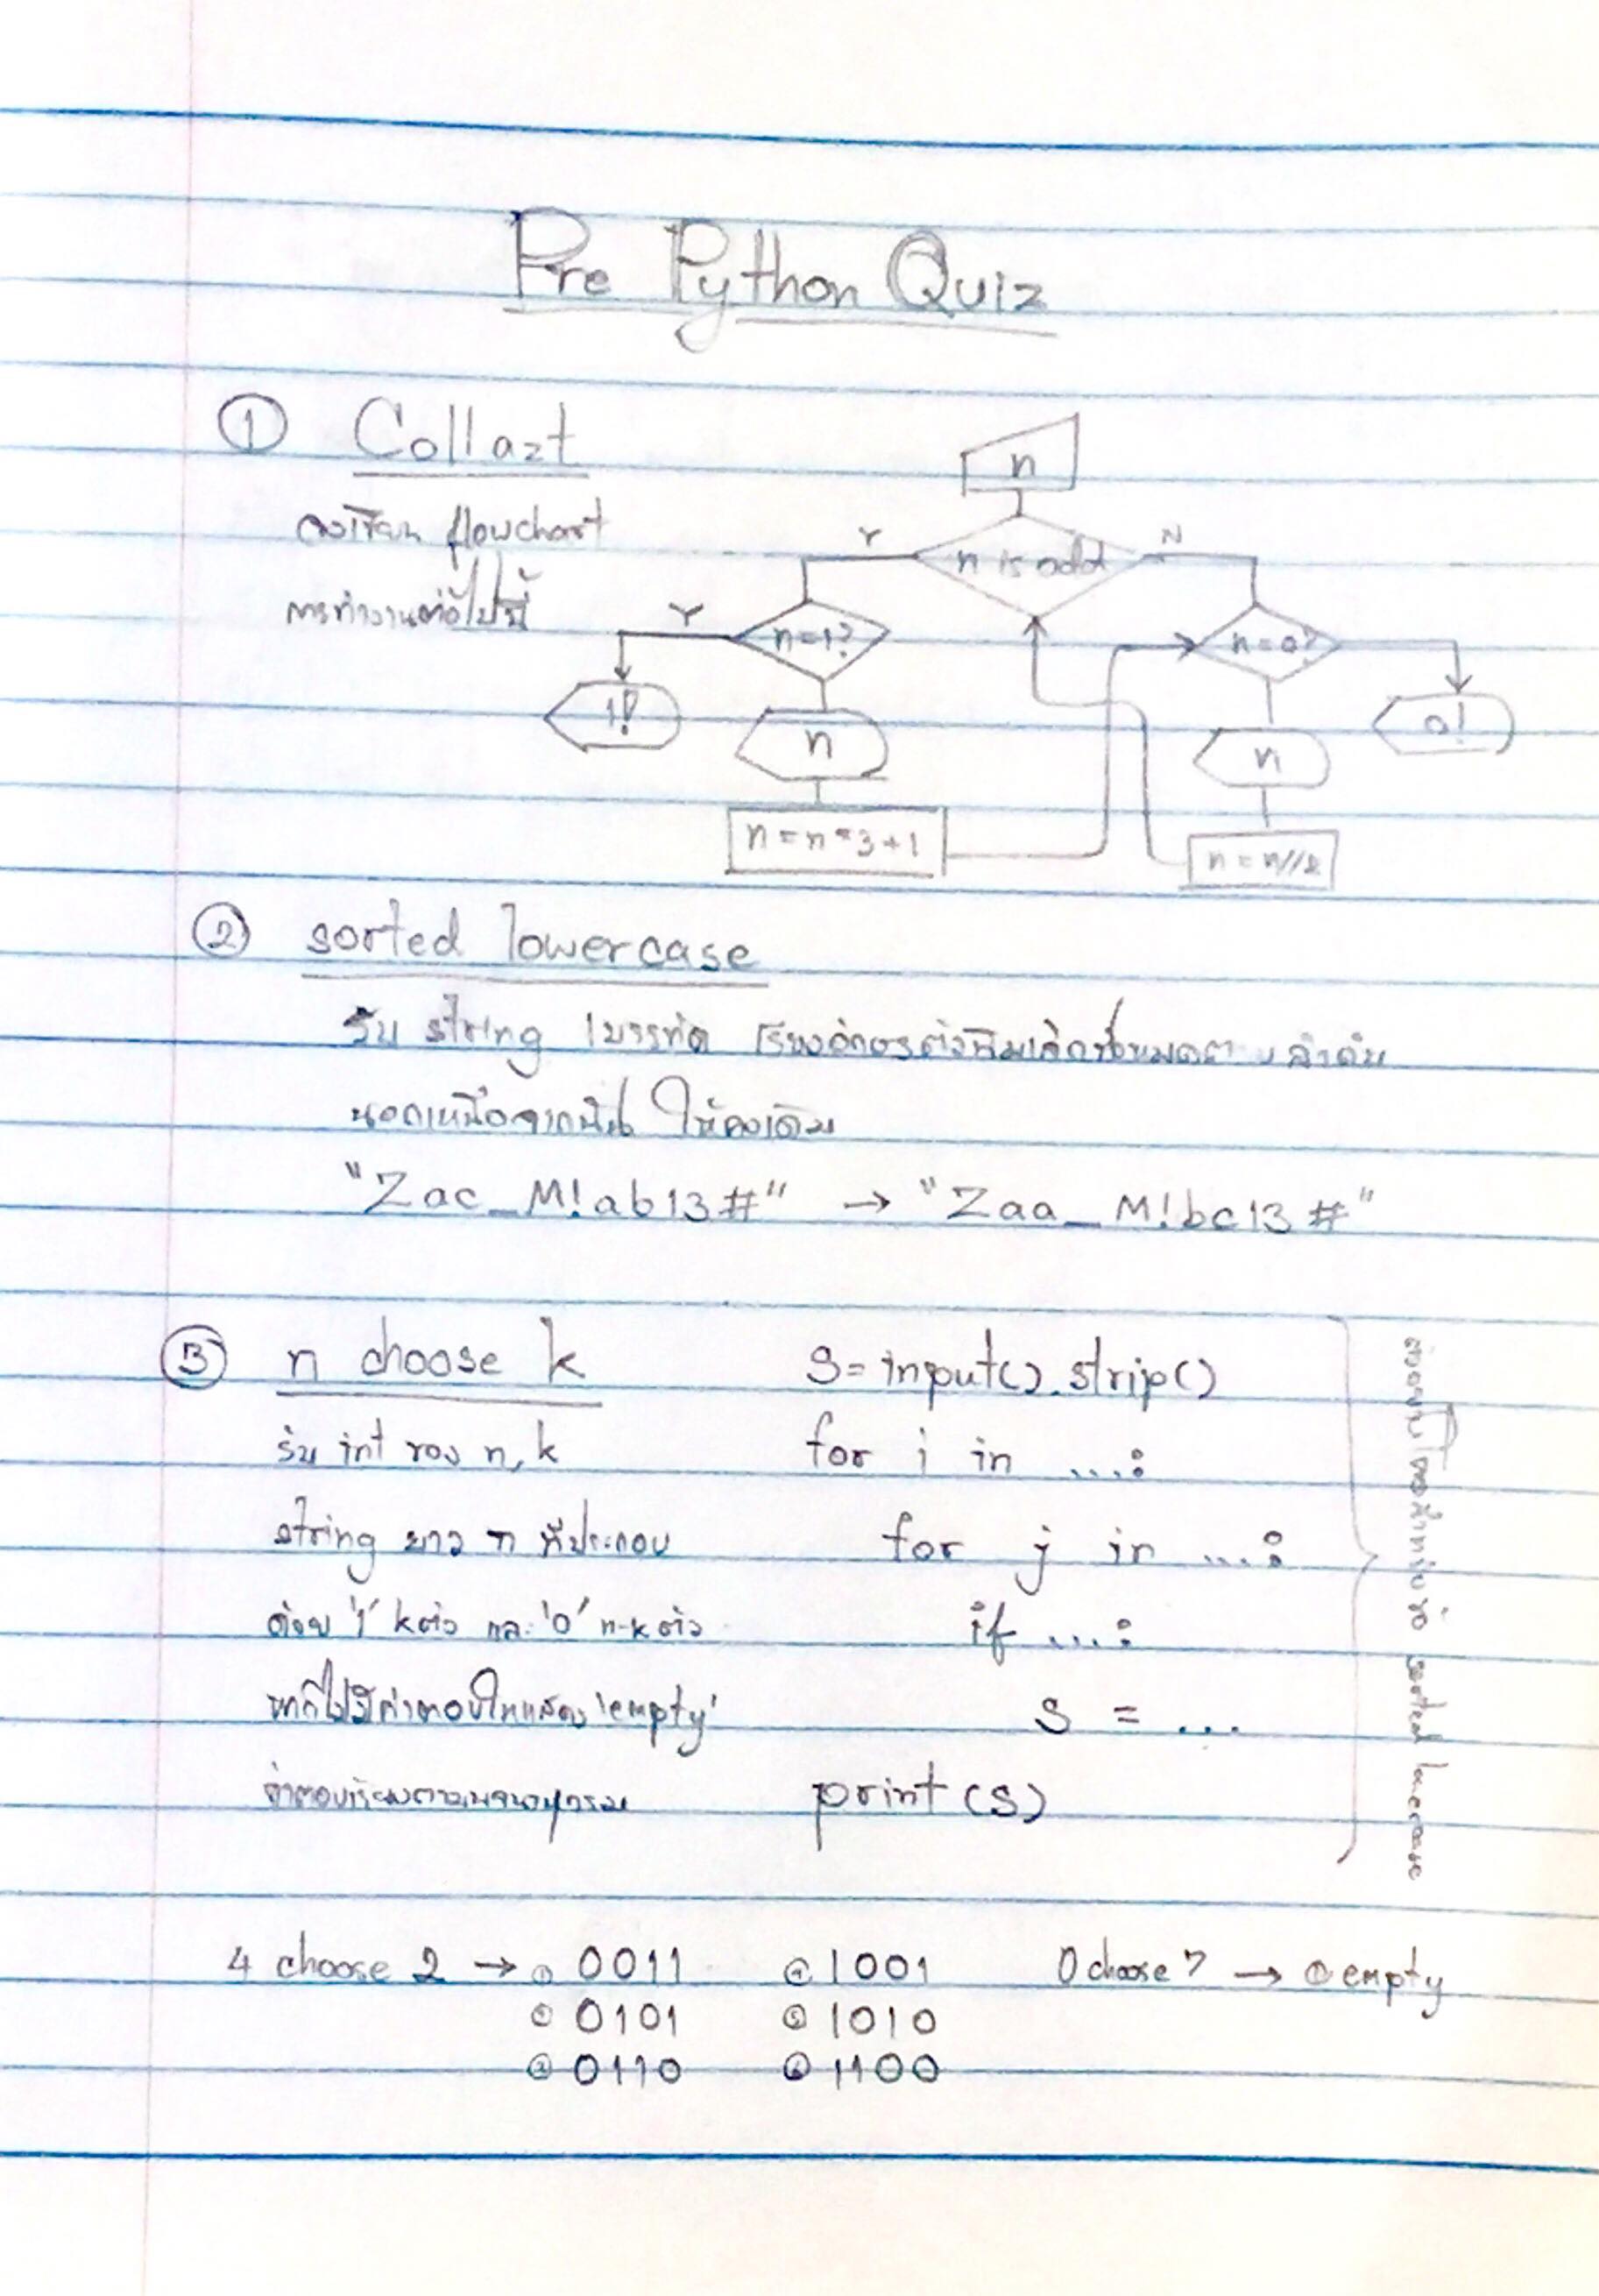 Pre Python Quiz
① Collazt
จงเขียน flowchart
การทำงานต่อไปนี้
n
Y
n is odd
N
Y
n=1?
n=0?
1!
n
n
0!
n = n*3+1
n = n//2
② sorted lowercase
รับ string 1บรรทัด เรียงอักษรตัวพิมเล็กทั้งหมดตามลำดับ
นอกเหนือจากนั้น ให้คงเดิม
"Zac_M!ab13#" → "Zaa_M!bc13#"
③ n choose k
รับ int ของ n, k
string ยาว n ที่ประกอบ
ด้วย '1' kตัว และ '0' n-kตัว
หากไม่มีคำตอบให้แสดง 'empty'
คำตอบเรียงตามพจนานุกรม
s = input().strip()
for i in ...:
for j in ...:
if ...:
s = ...
print(s)
ตัวอย่างโค้ดสำหรับข้อ sorted lowercase
4 choose 2 → ① 0011 ④ 1001 0 choose 7 → ① empty
② 0101 ⑤ 1010
③ 0110 ⑥ 1100